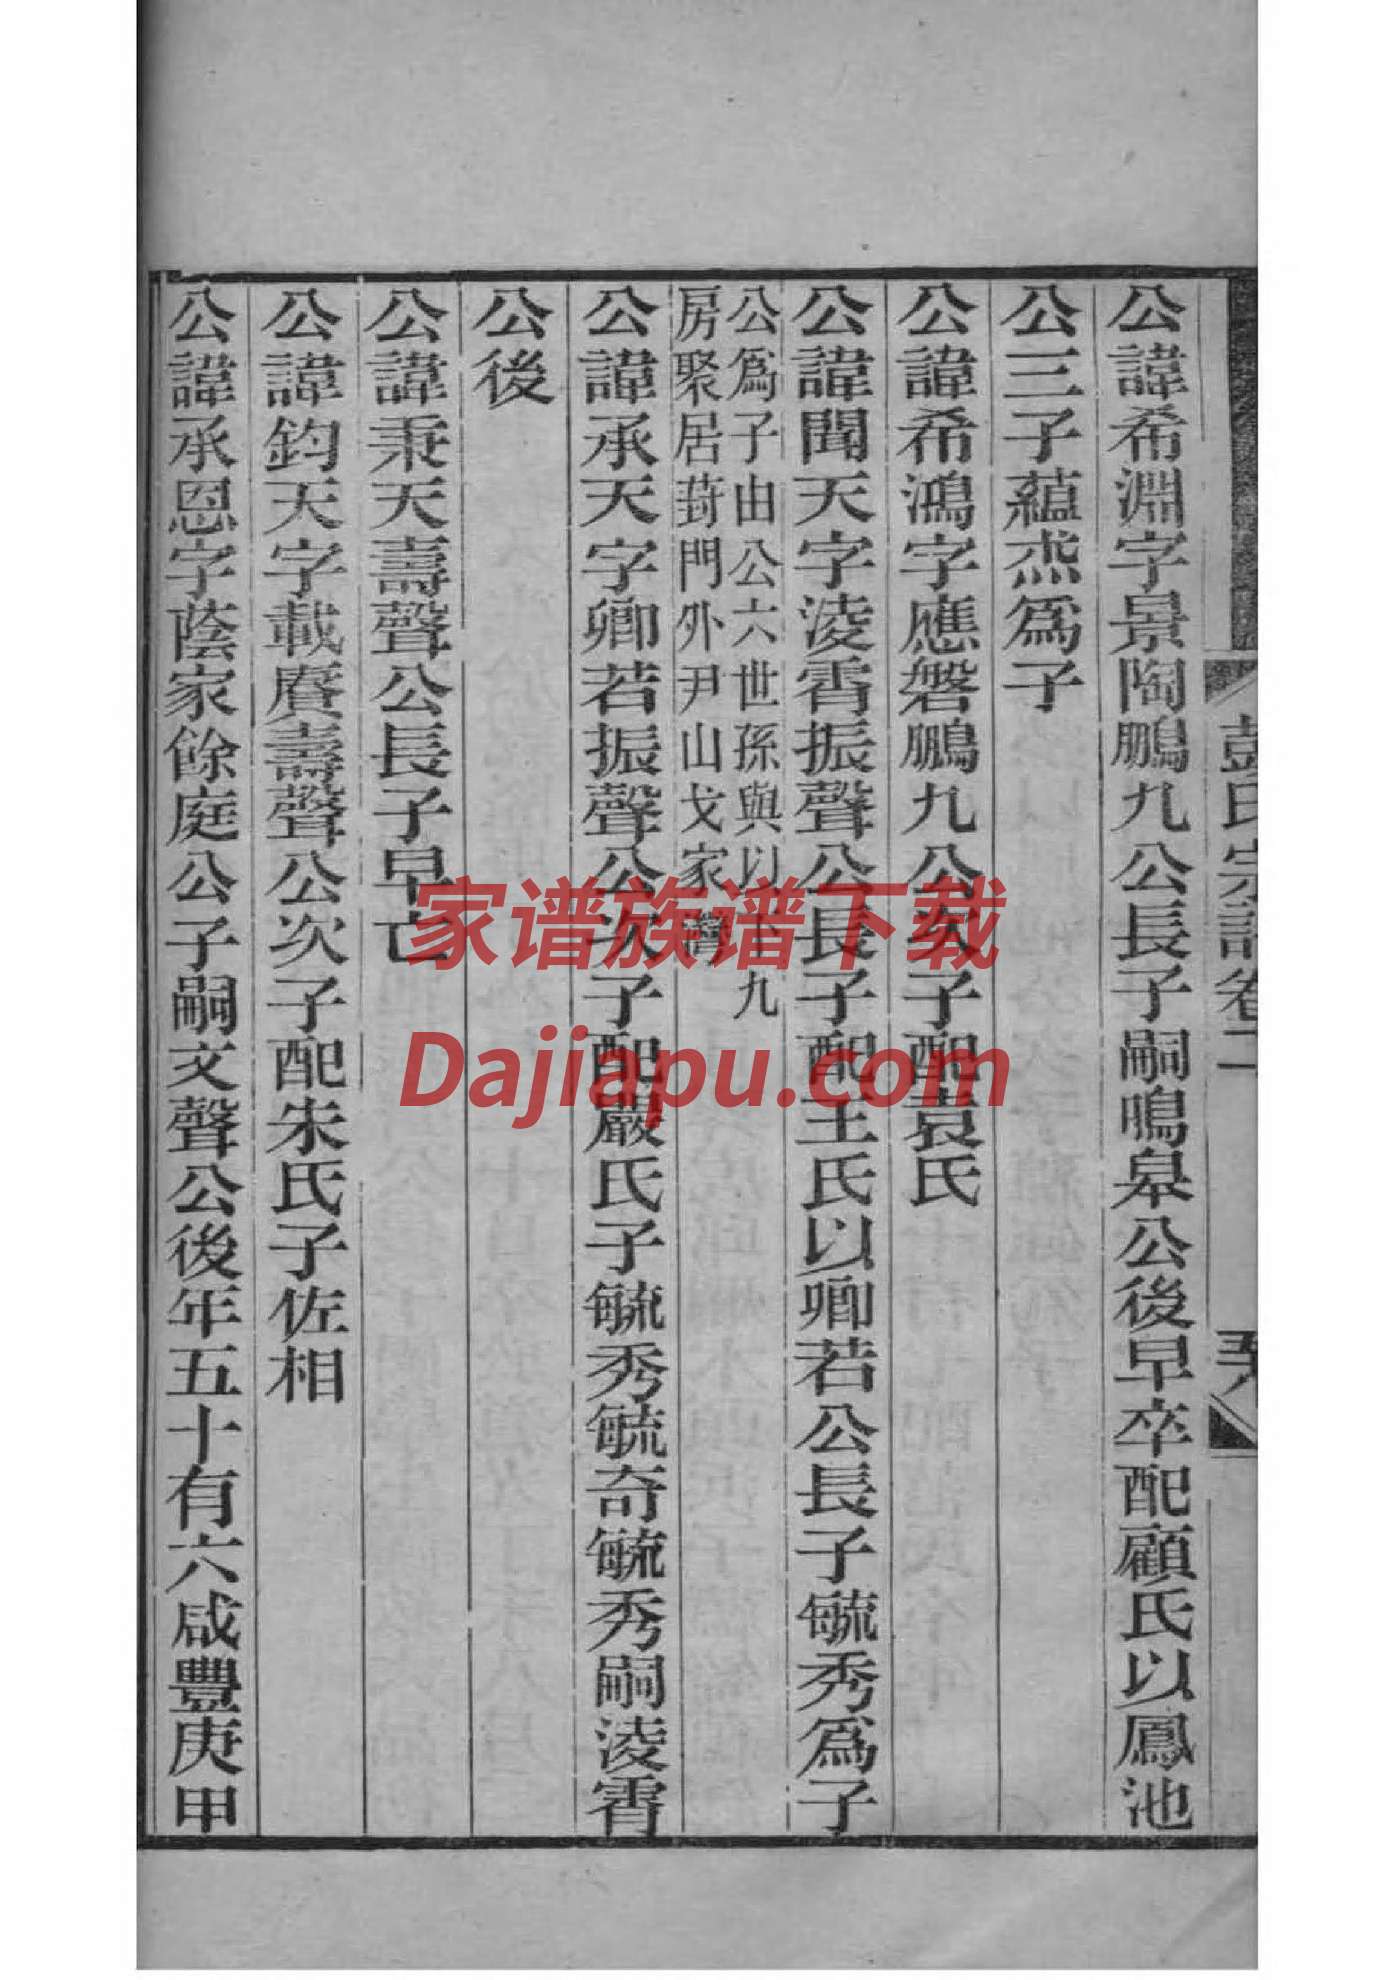 彭氏宗譜卷二
公諱希淵字景陶鵬九公長子嗣鳴皋公後早卒配顧氏以鳳池
公三子蘊烝爲子
公諱希鴻字應磐鵬九公次子配袁氏
公諱聞天字淩霄振聲公長子配王氏以卿若公長子毓秀爲子
公爲子由公六世孫與以上九
房聚居葑門外尹山戈家灣
公諱承天字卿若振聲公次子配嚴氏子毓秀毓奇毓秀嗣淩霄
公後
公諱秉天壽聲公長子早亡
公諱鈞天字載賡壽聲公次子配朱氏子佐相
公諱承恩字蔭家餘庭公子嗣文聲公後年五十有六咸豐庚申
家谱族谱下载
Dajiapu.com